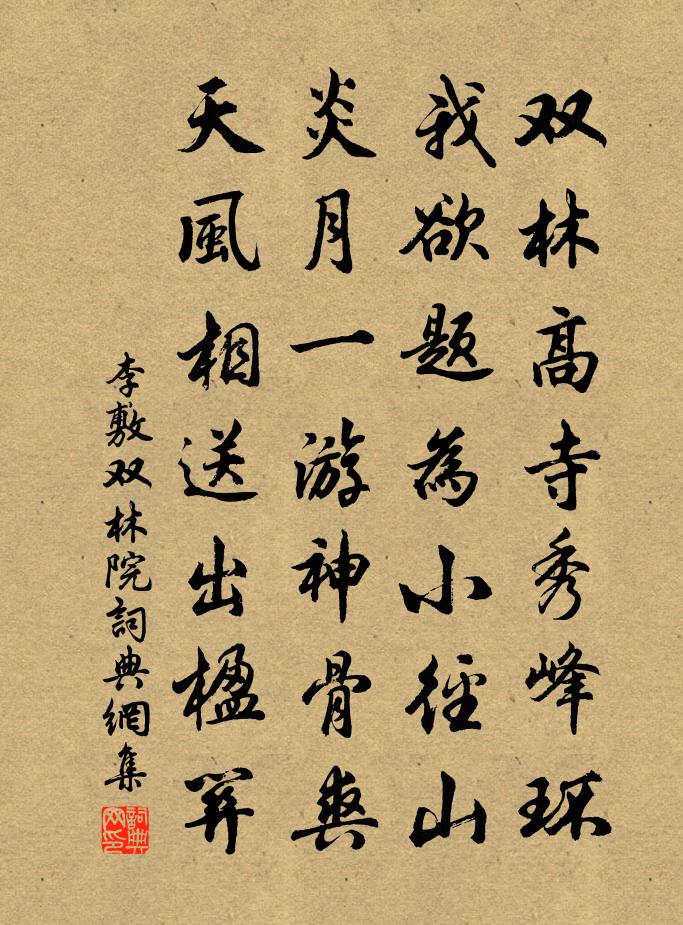 双林高寺秀峰环
我欲题為小徑山
炎月一游神骨爽
天風相送出楹
李敷双林院詞典網集
詞典网印